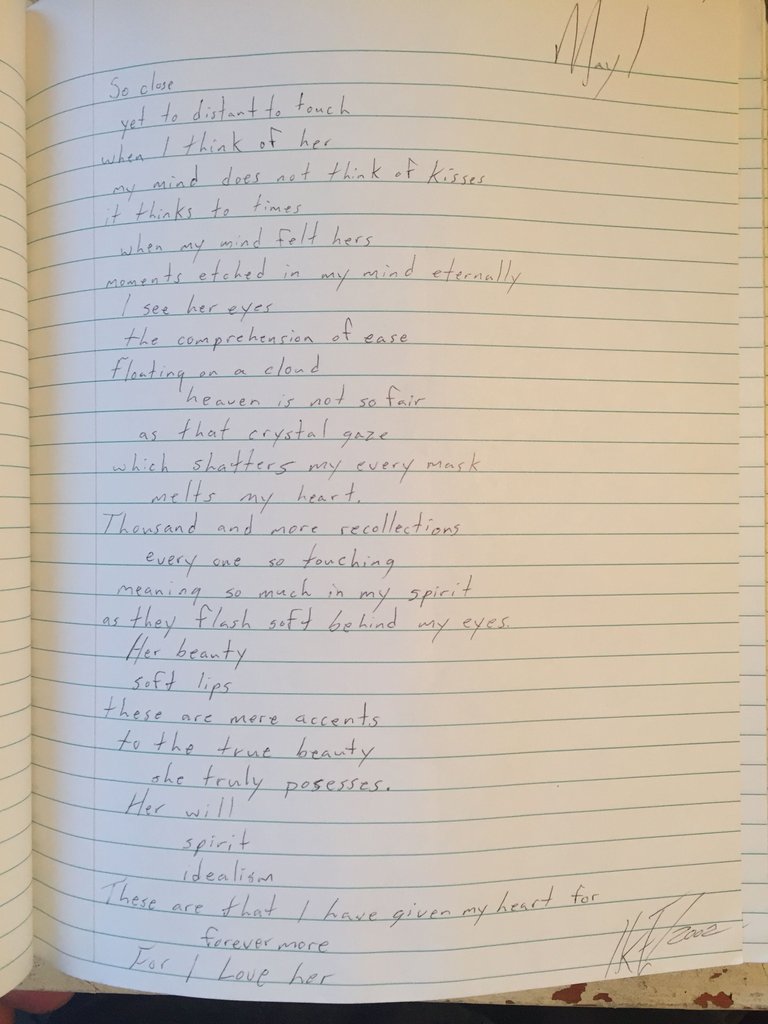 May 1
So close
yet to distant to touch
when I think of her
my mind does not think of kisses
it thinks to times
when my mind felt hers
moments etched in my mind eternally
I see her eyes
the comprehension of ease
floating on a cloud
heaven is not so fair
as that crystal gaze
which shatters my every mask
melts my heart.
Thousand and more recollections
every one so touching
meaning so much in my spirit
as they flash soft behind my eyes.
Her beauty
soft lips
these are mere accents
to the true beauty
she truly posesses.
Her will
spirit
idealism
These are that I have given my heart for
forevermore
For I Love her
2002